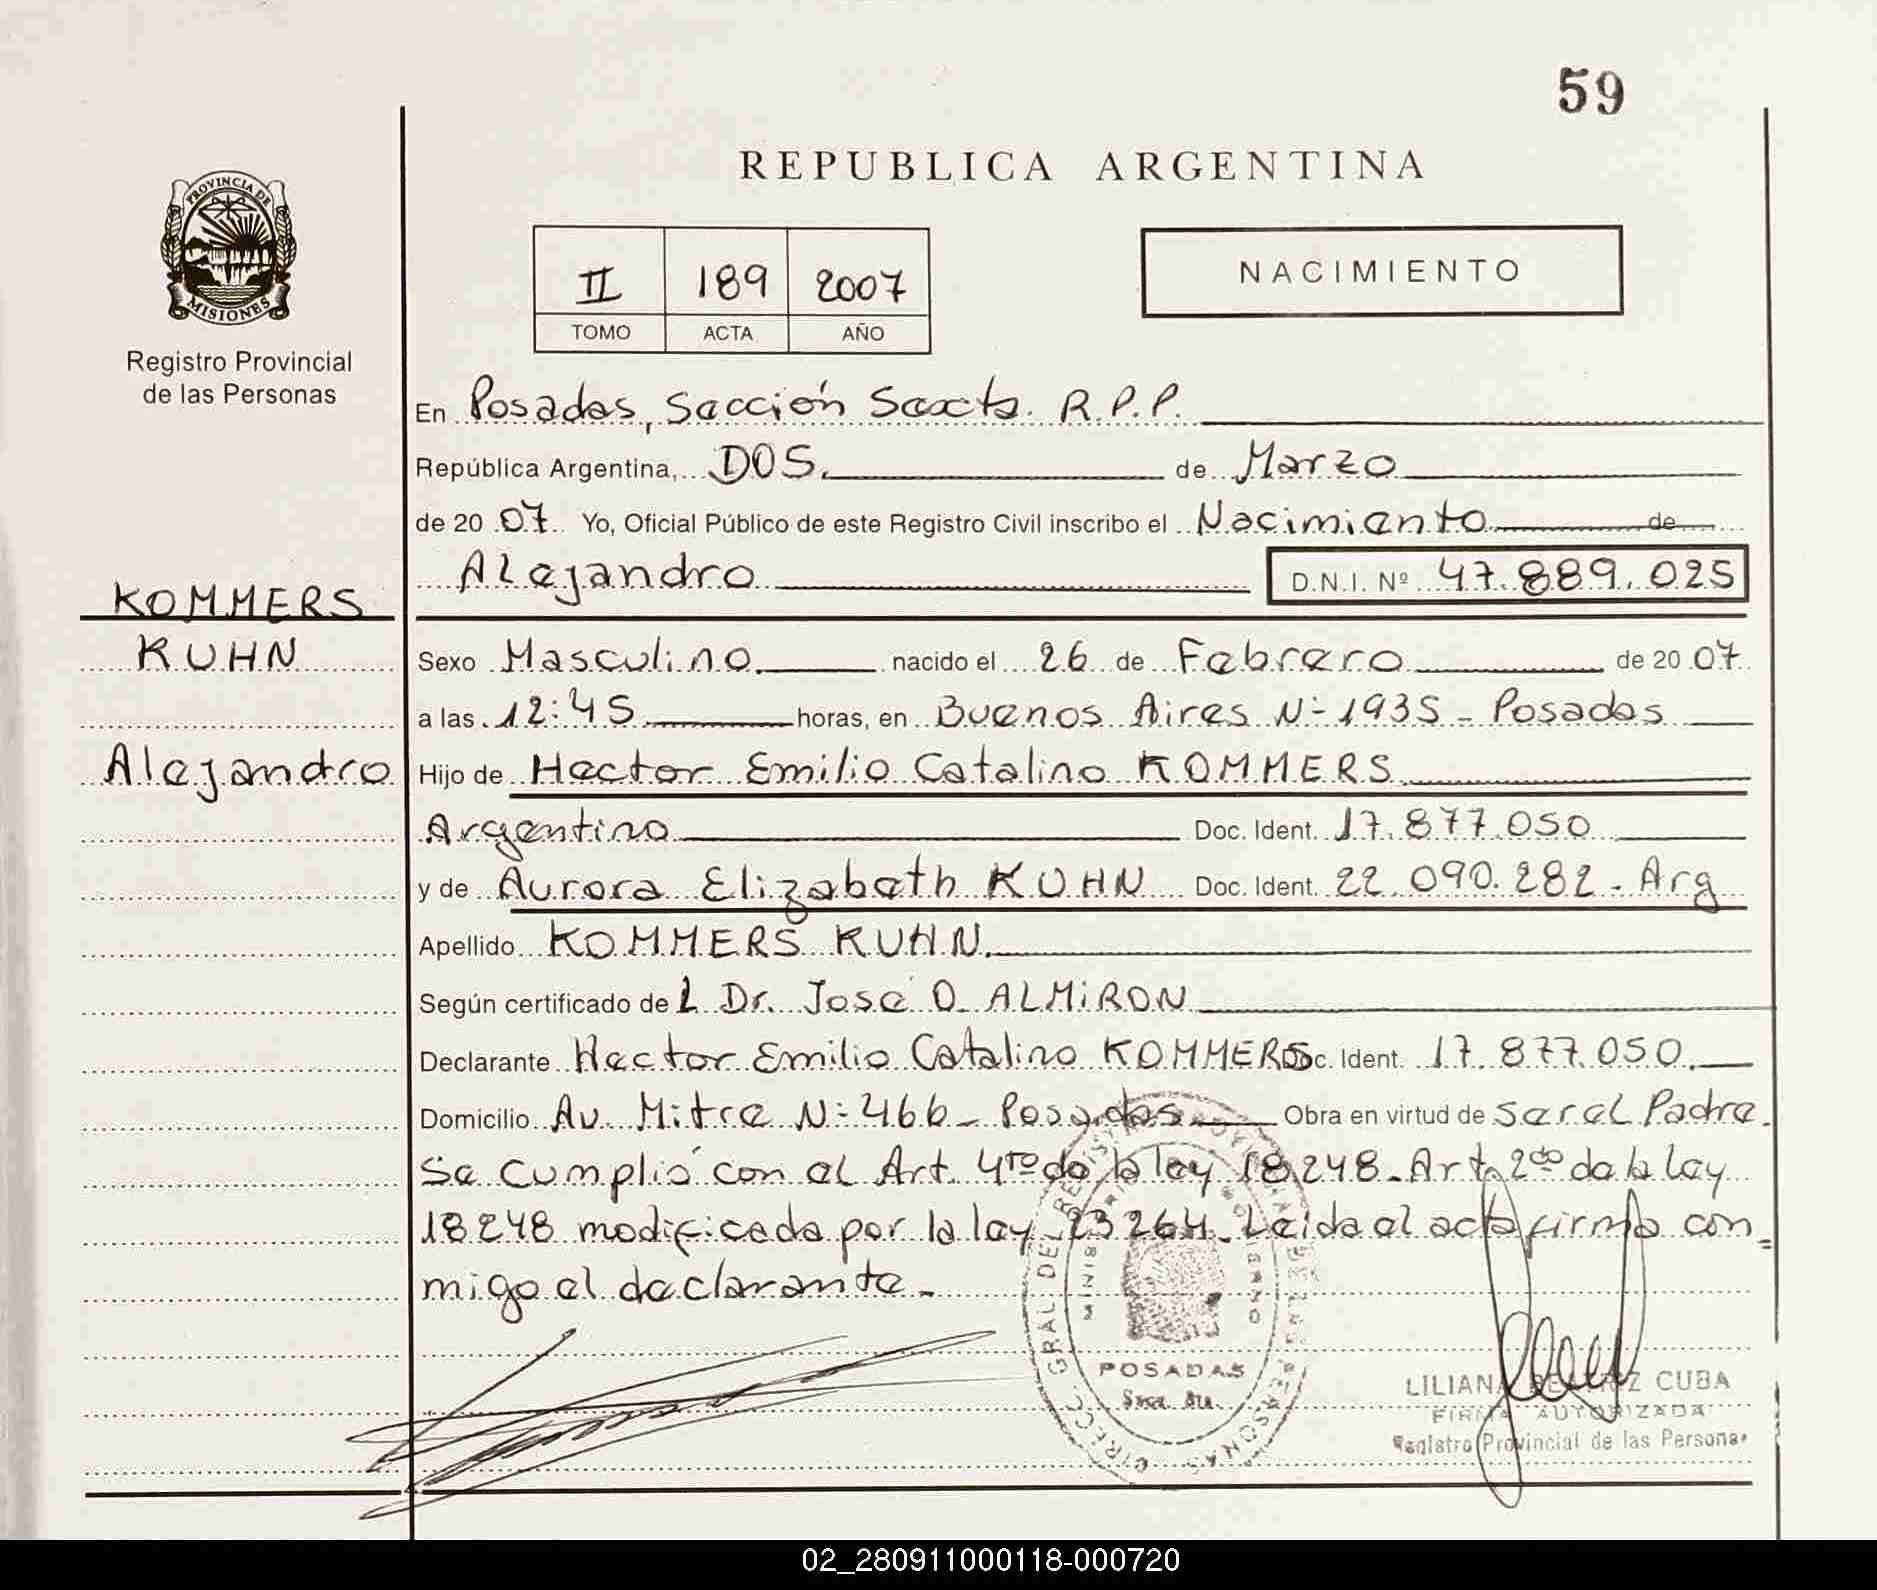 59
REPUBLICA ARGENTINA
PROVINCIA DE
MISIONES
Registro Provincial
de las Personas
II 189 2007
TOMO ACTA AÑO
NACIMIENTO
En Posadas, Sección Sexta. R.P.P.
República Argentina, DOS. de Marzo
de 20 07 Yo, Oficial Público de este Registro Civil inscribo el Nacimiento de
Alejandro D.N.I. Nº 47.889.025
KOMMERS
KUHN
Alejandro
Sexo Masculino. nacido el 26 de Febrero de 20 07
a las 12:45 horas, en Buenos Aires Nº 1935 - Posadas
Hijo de Hector Emilio Catalino KOMMERS
Argentino Doc. Ident. 17.877.050
y de Aurora Elizabeth KUHN Doc. Ident. 22.090.282 - Arg
Apellido KOMMERS KUHN.
Según certificado de L Dr. José O. ALMIRON
Declarante Hector Emilio Catalino KOMMERS Doc. Ident. 17.877.050.
Domicilio Av. Mitre Nº 466 - Posadas Obra en virtud de ser el Padre.
Se cumplió con el Art. 4to de la ley 18.248. Art. 2do de la ley
18248 modificada por la ley 23264. Leída el acta firma con=
migo el declarante.-
DIRECC. GRAL. DEL REGISTRO PROVINCIAL DE LAS PERSONAS
MINISTERIO DE GOBIERNO
POSADAS
Secc. 6ta.
LILIANA BEATRIZ CUBA
FIRMA AUTORIZADA
Registro Provincial de las Personas
02_280911000118-000720